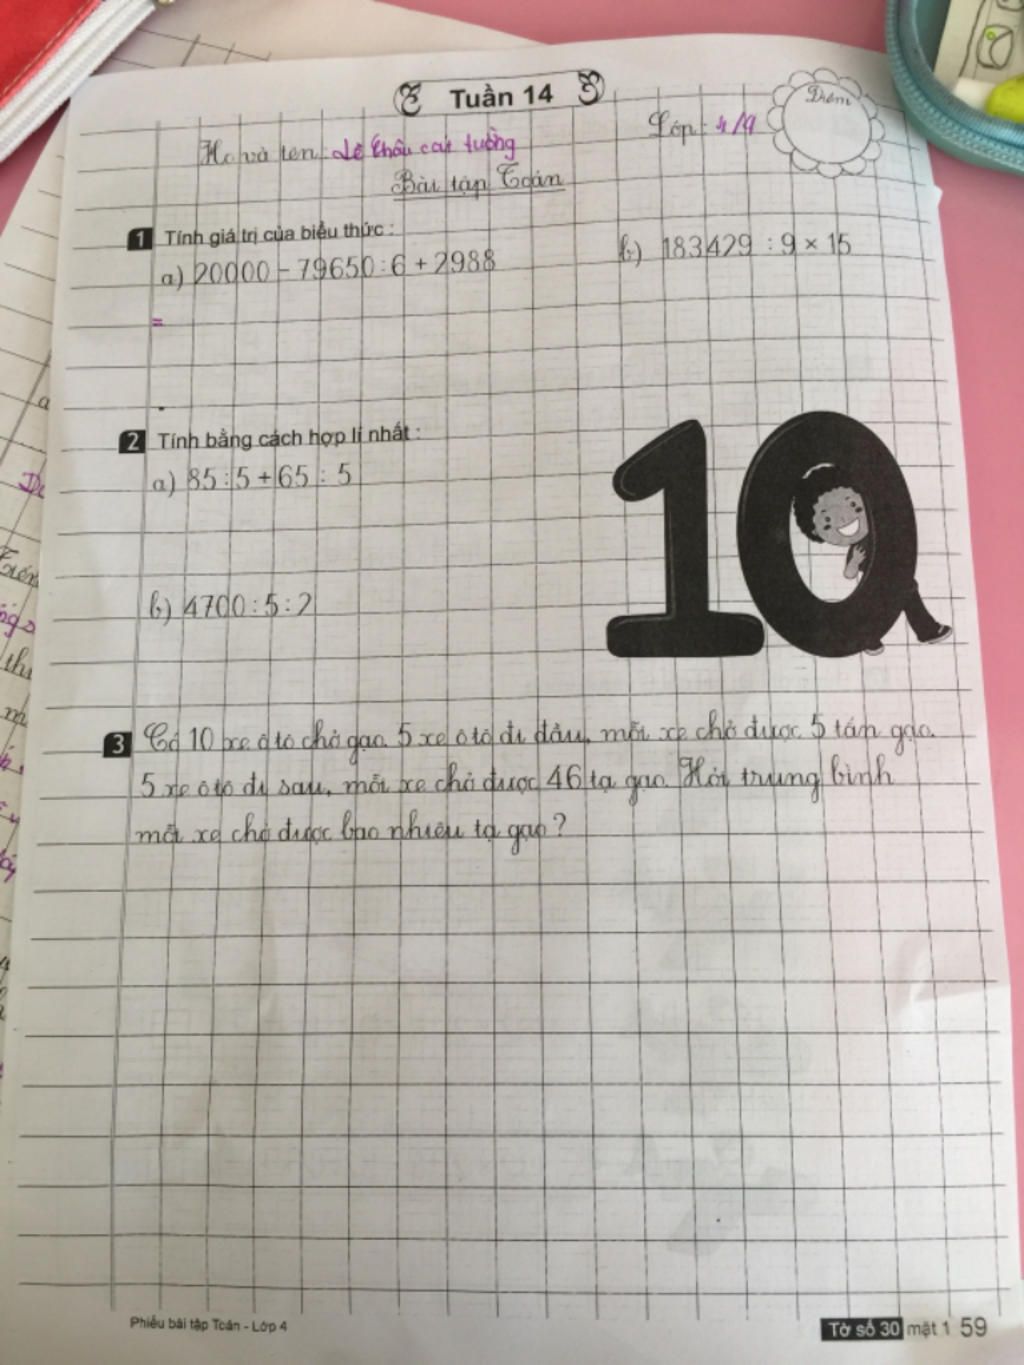 Tuần 14
Điểm
Họ và tên: Lê Châu cát tường Lớp: 4/9
Bài tập Toán
1 Tính giá trị của biểu thức :
a) 20000 - 79650 : 6 + 2988 b) 183429 : 9 × 15
=
2 Tính bằng cách hợp lí nhất :
a) 85 : 5 + 65 : 5
b) 4700 : 5 : 2
10
3 Có 10 xe ô tô chở gạo. 5 xe ô tô đi đầu, mỗi xe chở được 5 tấn gạo.
5 xe ô tô đi sau, mỗi xe chở được 46 tạ gạo. Hỏi trung bình
mỗi xe chở được bao nhiêu tạ gạo?
Phiếu bài tập Toán - Lớp 4
Tờ số 30 mặt 1 59